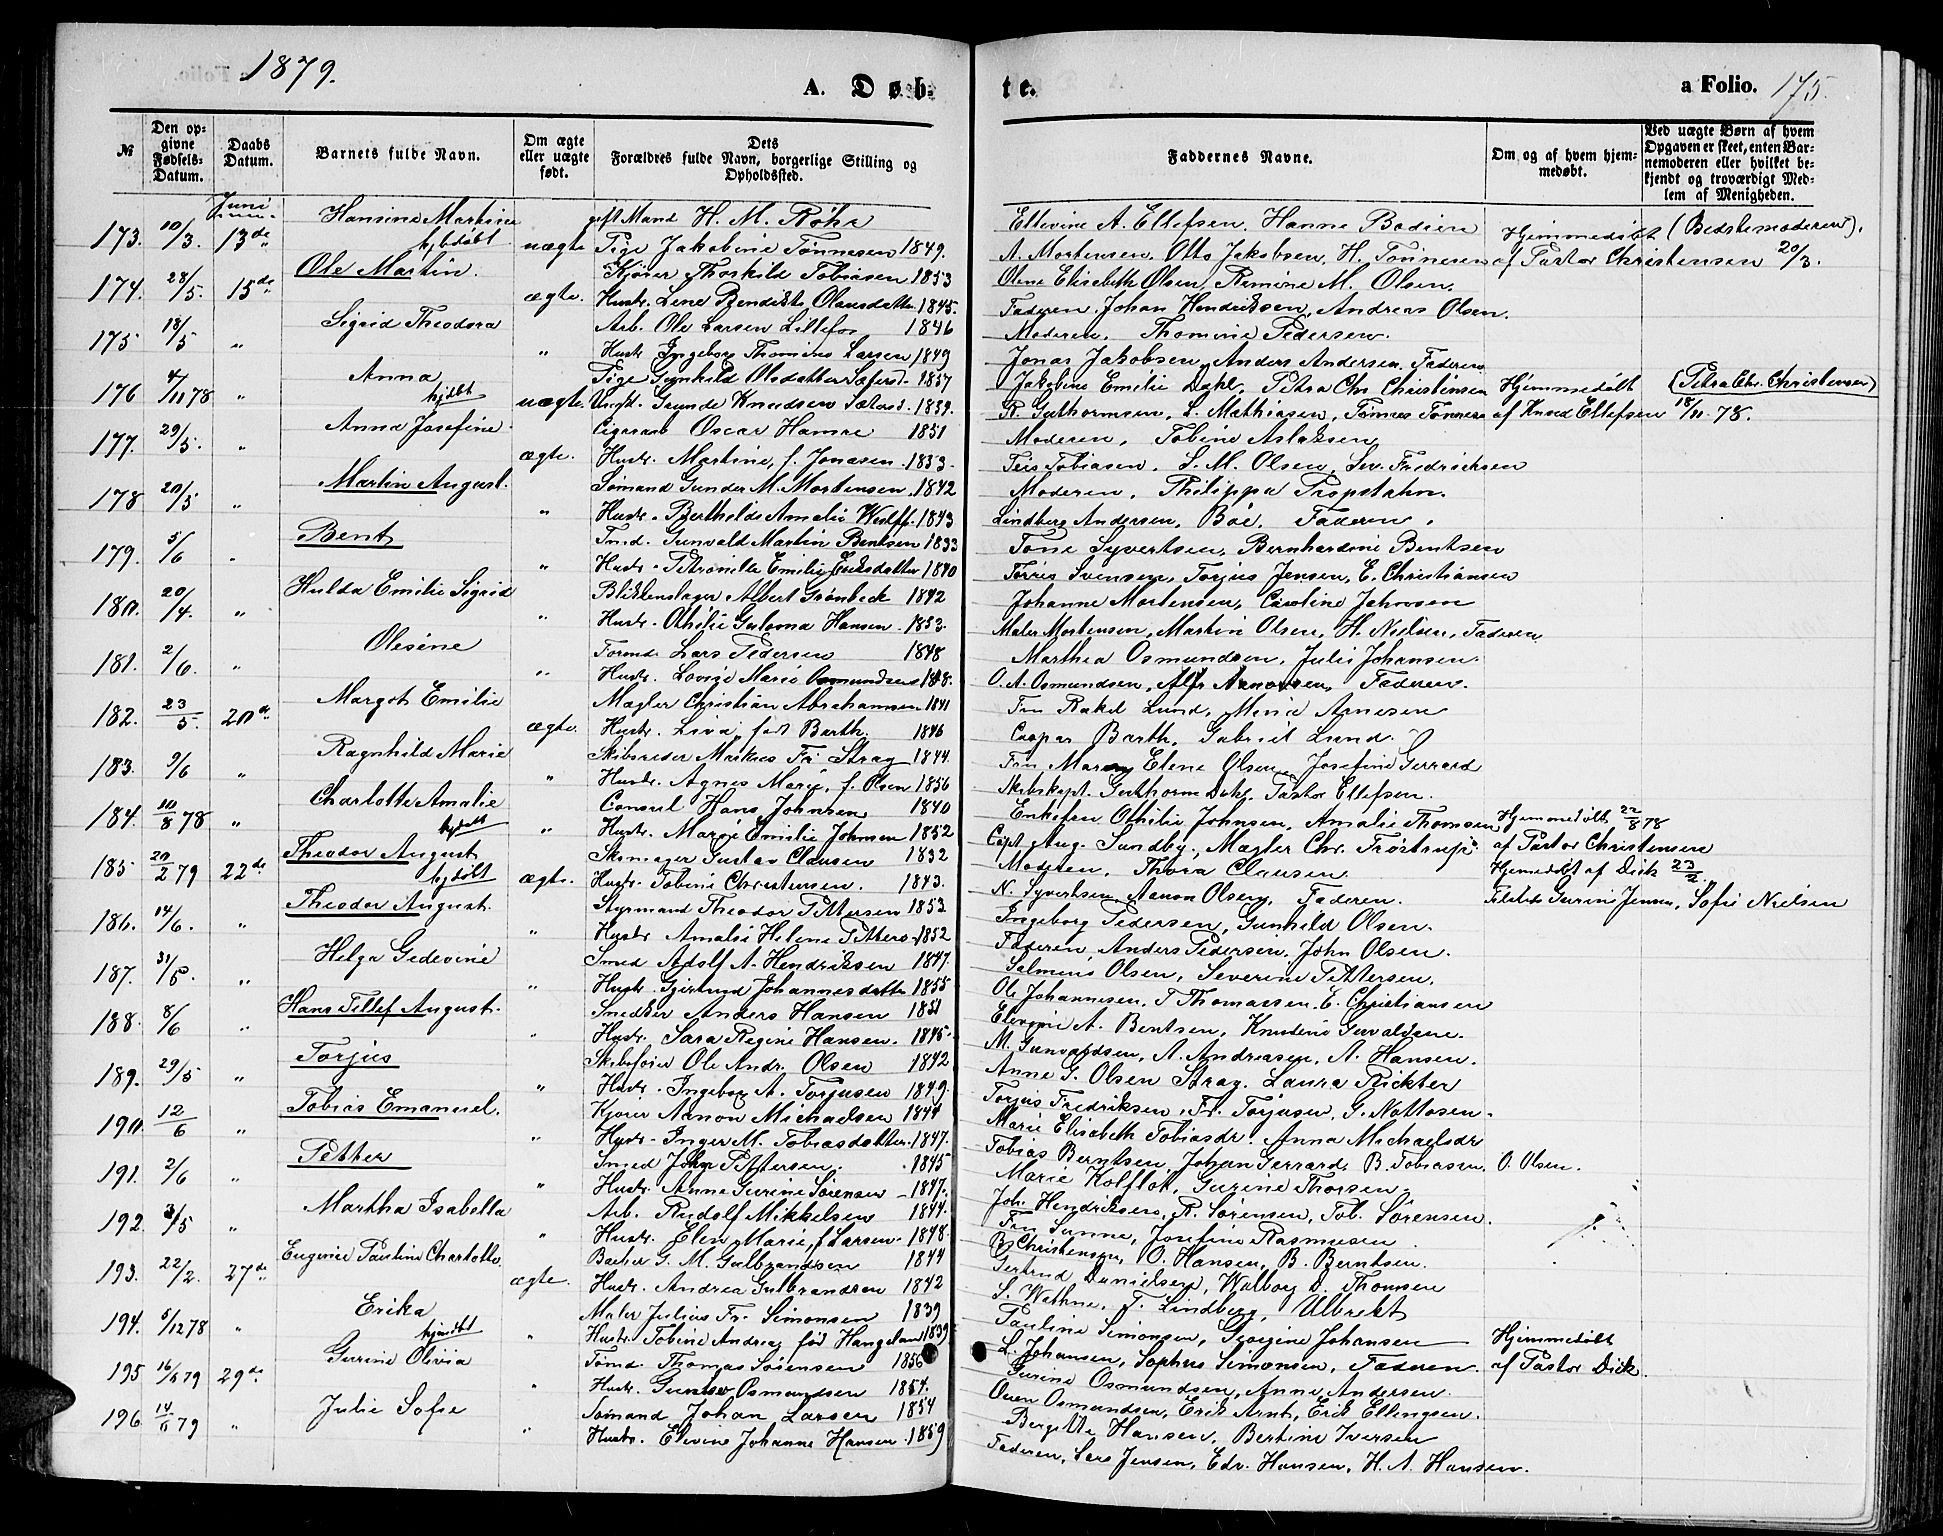 1879.
A. Døb-
te.
a Folio. 175.
№
Den op-
givne
Fødsels-
Datum.
Daabs
Datum.
Barnets fulde Navn.
Om ægte
eller uægte
født.
Dets
Forældres fulde Navn, borgerlige Stilling og
Opholdssted.
Faddernes Navne.
Om og af hvem hjem-
medøbt.
Ved uægte Børn af hvem
Opgaven er skeet, enten Bar-
nemoderen eller hvilket be-
kjendt og troværdigt Med-
lem af Menigheden.
Juni
173. 10/3. 13de Hansine Martine hjdøbt. uægte gift Mand H. M. Röhr
Pige Jakobine Tønnesen 1849.
Ellevine A. Ellefsen. Hanne Bodien
A. Mortensen. Otto Jakobsen, H. Tønnesen
Hjemmedøbt (Bedstemoderen).
af Pastor Christensen 20/3.
174. 28/5. 15de Ole Martin. ægte. Kjører Thorkild Tobiasen 1853
Hustr. Lene Bendikte Olausdatter 1845.
Olene Elisabeth Olsen, Remine M. Olsen.
Faderen, Johan Hendriksen, Andreas Olsen.
175 18/5 " Sigrid Theodora " Arb. Ole Larsen Lillefos 1846
Hustr. Ingeborg Thomine Larsen 1849
Moderen, Thomine Pedersen.
Jonas Jakobsen, Anders Andersen, Faderen
176 4/11 78 " Anna hjdøbt uægte. Pige Gunhild Olsdatter Sæterst. 1857
Ungk. Gunde Knudsen Sæterst. 1839.
Jakobine Emilie Dahl, Petra Chr. Christensen
R. Guthormsen, L. Mathiasen, Tønnes Tønnesen
Hjemmedøbt (Petra Chr. Christensen)
af Knud Ellefsen 18/11. 78.
177. 29/5. " Anna Josefine. ægte. Cigararb Oscar Hamre 1851
Hustr. Martine, f. Jonasen. 1853.
Moderen, Tobine Aslaksen
Teis Tobiasen. S. M. Olsen, Sev. Fredriksen
178 20/5 " Martin August. " Sømand Gunder M. Mortensen. 1842
Hustr. Berthilde Amalie 1843
Moderen, Philippa Propstahn.
Lindberg Andersen, Böe, Faderen.
179. 5/6 " Bent " Tmd. Gunvald Martin Bentsen 1833
Hustr. Petronille Emilie Eriksdatter 1840
Tone Syvertsen, Bernhardine Bentsen
Torris Svensen, Torjus Jensen, E. Christiansen
180. 20/4. " Hulda Emilie Sigrid " Blikkenslager Albert Grønbeck 1842
Hustr. Othilie Galoma Hansen. 1853.
Johanne Mortensen, Caroline Jahnsen
Maler Mortensen, Martin Olsen, H. Nielsen, Faderen
181. 2/6. " Olesine " Tømmd. Lars Pedersen 1848
Hustr. Lovise Marie Osmundsen 1848.
Marthea Osmundsen, Julie Johansen.
O. A. Osmundsen, Alfr Aanonsen, Faderen.
182. 23/5. 20de Margot Emilie ægte. Mægler Christian Abrahamsen 1841
Hustr. Liva, født Barth. 1846
Fru Rakel Lund, Mena Arnesen
Caspar Barth, Gabriel Lund.
183. 9/6 " Ragnhild Marie " Skibsreder Markus Fr Stray 1844.
Hustr. Agnes Marie, f. Olsen 1856
Fru Maren Elene Olsen, Josefine Gerrard
Skibskapt. Guthorm Dahl. Pastor Ellefsen.
184. 10/8 78 " Charlotte Amalie hjdøbt " Consul Hans Johnsen 1840
Hustr. Marie Emilie Johnsen 1852
Enkefru Othilie Johnsen, Amalie Thomsen
Capt. Aug. Sundby, Mægler Chr. Frøstrup.
Hjemmedøbt 22/8 78
af Pastor Christensen
185 20/2 79 22de Theodor August hjdøbt ægte. Skomager Gustav Clausen 1832
Hustr. Tobine Christensen. 1843.
Moderen, Thora Clausen
N. Syvertsen, Aanon Olsen, Faderen.
Hjemedøbt af Dick 23/2.
186. 14/6. " Theodor August. " Styrmand Theodor Pettersen 1853
Hustr. Amalie Helene Petters. 1852
Ingeborg Pedersen, Gunhild Olsen.
Faderen, Anders Pedersen, John Olsen.
Gurine Jensen, Sofie Nielsen
187. 31/5. " Helga Gedevine " Smed Adolf A. Hendriksen 1847.
Hustr. Gjertrud Johannesdatter 1855
Salmine Olsen, Severine Pettersen.
Ole Johannesen, T Thomassen. E. Christiansen
188. 8/6 " Hans Tellef August. " Snedker Anders Hansen 1851
Hustr. Sara Regine Hansen. 1845.
Elevine A. Bentsen, Knudine Gunvaldsen.
M. Gunvaldsen, A. Andreasen, A. Hansen.
189. 29/5 " Torjus " Skibsfører Ole Andr. Olsen 1842
Hustr. Ingeborg A. Torjusen 1849.
Anne G. Olsen Stray. Laura Rickter
Torjus Fredriksen, Fr. Torjusen, G. Nottosen.
190. 12/6 " Tobias Emanuel. " Kjører Aanon Michaelsen 1844
Hustr. Inger M. Tobiasdatter. 1847.
Marie Elisabeth Tobiasdr. Anna Michaelsdr
Tobias Berntsen, Johan Gerrard, B. Tobiasen. O. Olsen.
191. 2/6 " Petter " Smed John Pettersen. 1845
Hustr. Anne Gurine Sørensen 1847.
Marie Kolflot, Gurine Thorsen.
Joh. Hendriksen, R. Sørensen, Tob. Sørensen.
192. 3/5 " Martha Isabella " Arb. Rudolf Mikkelsen 1844.
Hustr. Elen Marie, f Larsen. 1848.
Fru Sunne, Josefine Rasmussen
B. Christensen, O. Hansen, B. Berntsen.
193. 22/2. 27de Eugenie Pauline Charlotte. ægte. Barber G. M. Gulbrandsen 1844
Hustr. Andrea Gulbrandsen 1842
Gertrud Danielsen, Walborg D. Thomsen
S. Wathne, F. Lindberg, Ulbrekt
194. 5/12 78 " Erika hjmdøbt " Maler Julius Fr. Simonsen 1839
Hustr. Tobine Andrea født 1839
Pauline Simonsen, Georgine Johansen
L. Johansen, Sophus Simonsen, Faderen.
Hjemmedøbt
af Pastor Dick
195 16/5 79 29de. Gurine Olivia " Tømmd. Thomas Sørensen 1856
Hustr. Gunine Osmundsen 1854.
Gurine Osmundsen, Anne Andersen.
Oven Osmundsen, Erik Arnt, Erik Ellingsen.
196. 14/5 79 " Julie Sofie " Sømand Johan Larsen 1854
Hustr. Elevine Johanne Hansen. 1859
Bergitte Hansen, Bertine Iversen
Faderen, Lars Jensen, Edv. Hansen, H. A. Hansen.